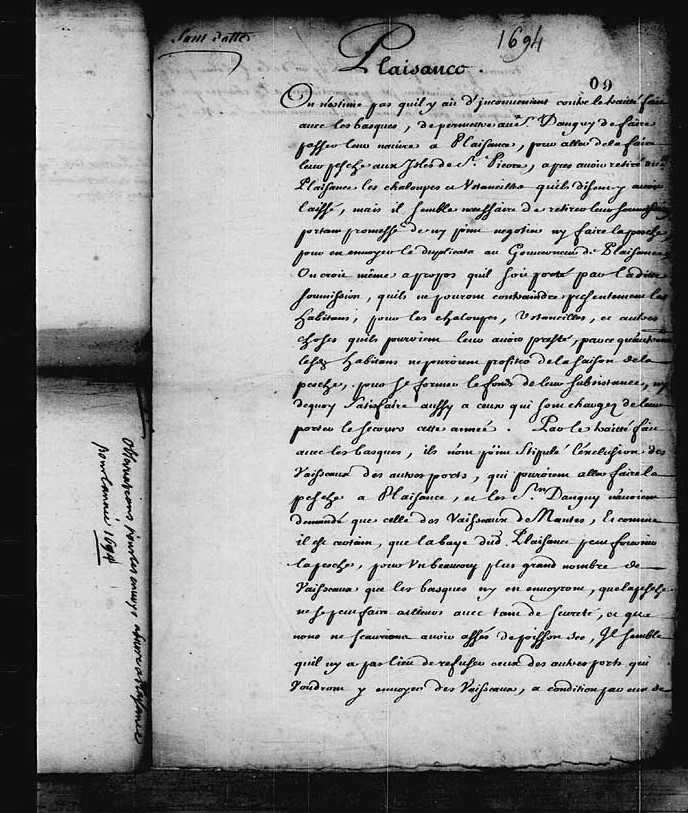 Sans datte
1694
Plaisance.
09
On n'estime pas quil y ait d'jnconvenient contre le traitté fait
avec les basques, de permettre au Sr. Danguy de faire
passer leur navire a Plaisance, pour aller de la faire
leur pesche aux Isles de St. Pierre, apres avoir retiré de
Plaisance les chaloupes et Ustancilles quils disent y avoir
laissé, mais il semble necessaire de retirer leur soumission
portant promesse de ny point negotier ny faire la pesche
pour en envoyer le duplicata au Gouverneur de Plaisance
On croit même a propos quil soit porté par ladite
soumission, quils ne pourront contraindre presentement les
habitans, pour les chaloupes, Ustancilles, et autres
choses quils pourroient leur avoir presté, parce qu'autrement
lesd. habitans ne pourroient profiter de la saison de la
pesche, pour se former le fonds de leur subsistance, ny
dequoy satisfaire aussy a ceux qui sont chargez de leur
porter le secours cette année. Par le traitté fait
avec les basques, ils n'ont point stipulé l'exclusion des
Vaisseaux des autres ports, qui pourroient aller faire la
pesche a Plaisance, et les Srs. Danguy n'avoient
demandé que celle des Vaisseaux de Nantes, Et comme
il est certain, que la baye dud. Plaisance peut fournir
la pesche, pour Un beaucoup plus grand nombre de
Vaisseaux que les basques ny en envoyront, que la pesche
ne se peut faire ailleurs avec tant de seureté, et que
nous ne scaurions avoir assés de poisson sec, Il semble
quil ny a pas lieu de refuser ceux des autres ports qui
Voudront y envoyer des Vaisseaux, a condition par eux de
Observations pour les envoys a faire a Plaisance
pour l'année 1694